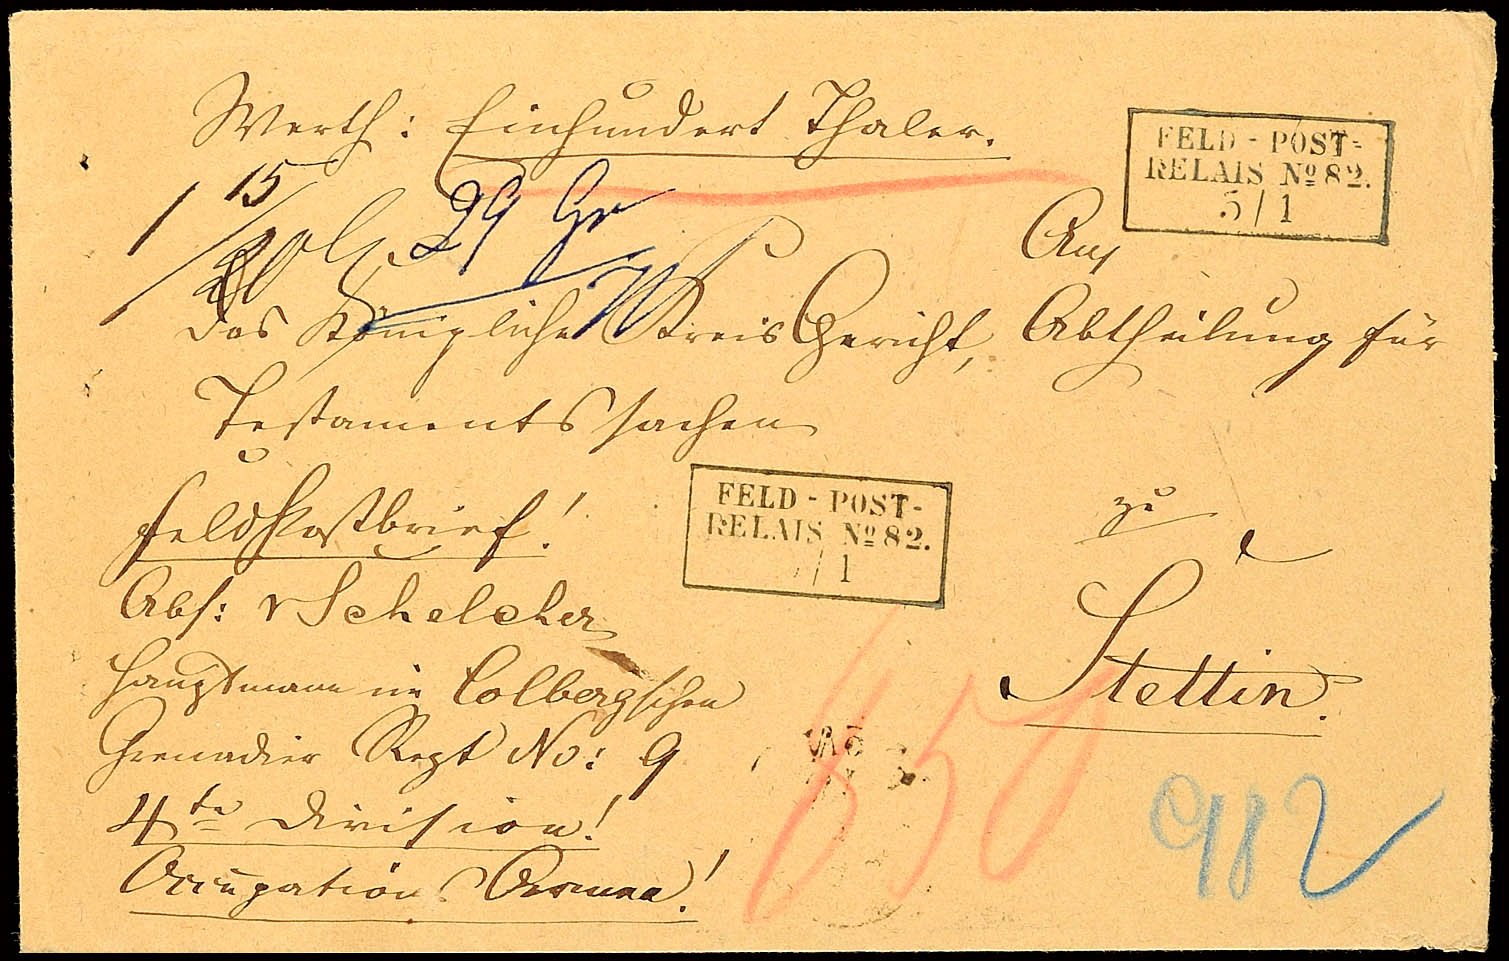 Werth: Einhundert Thaler.
FELD - POST-
RELAIS No 82.
5/1
15
29 Gr
An
das Königliche Kreis Gericht, Abtheilung für
Testaments sachen
Feldpostbrief!
FELD - POST-
RELAIS No 82.
/1
zu
Abs: v Schelcher
Stettin.
Hauptmann im Colbergschen
Grenadier Regt No: 9
4te Division!
Occupations Armee!
850
982